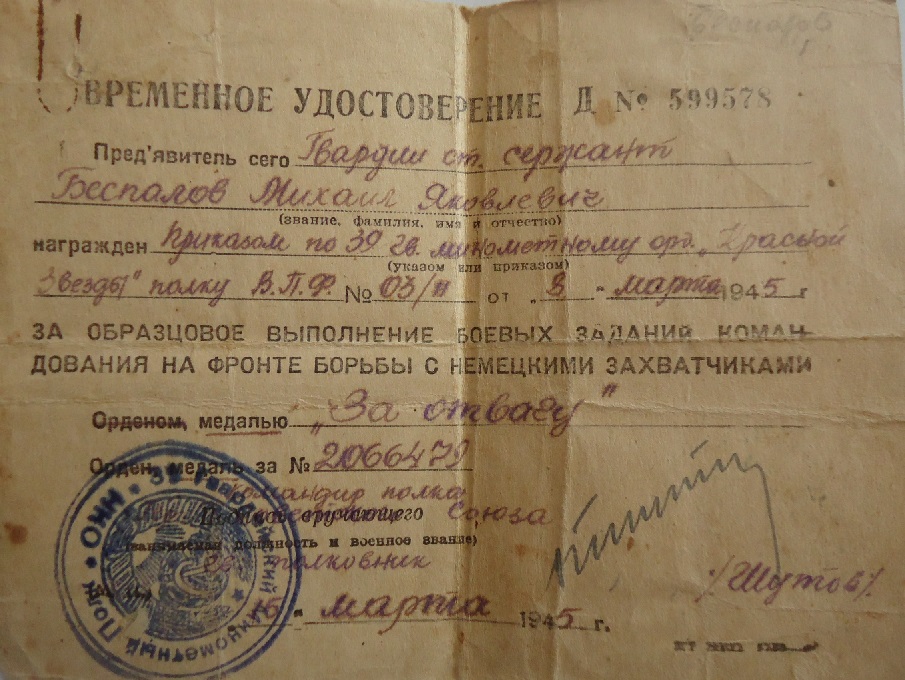 Беспалов
ВРЕМЕННОЕ УДОСТОВЕРЕНИЕ Д № 599578
Пред'явитель сего Гвардии ст. сержант
Беспалов Михаил Яковлевич
(звание, фамилия, имя и отчество)
награжден Приказом по 39 гв. минометному орд. „Красной
(указом или приказом)
Звезды" полку В.П.Ф. № 03/н от „3 " марта 1945 г
ЗА ОБРАЗЦОВОЕ ВЫПОЛНЕНИЕ БОЕВЫХ ЗАДАНИЙ КОМАН-
ДОВАНИЯ НА ФРОНТЕ БОРЬБЫ С НЕМЕЦКИМИ ЗАХВАТЧИКАМИ
Орденом, медалью „За отвагу"
Орден, медаль за № 2066479
Командир полка
Подпись вручающего Союза
(занимаемая должность и военное звание)
гв. полковник
/Шутов/
марта 1945 г.
ОНН • 39 Гвардейский Минометный Полк